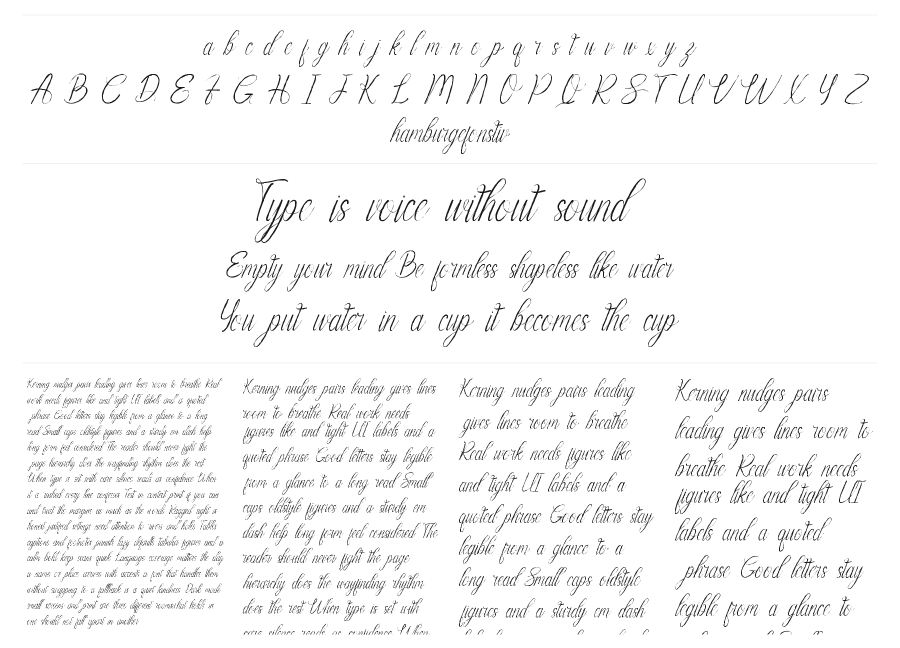 a b c d e f g h i j k l m n o p q r s t u v w x y z
A B C D E F G H I J K L M N O P Q R S T U V W X Y Z
hamburgefonstiv
Type is voice without sound
Empty your mind Be formless shapeless like water
You put water in a cup it becomes the cup
Kerning nudges pairs leading gives lines room to breathe Real
work needs figures like and tight UI labels and a quoted
phrase Good letters stay legible from a glance to a long
read Small caps oldstyle figures and a sturdy em dash help
long form feel considered The reader should never fight the
page hierarchy does the wayfinding rhythm does the rest
When type is set with care silence reads as confidence When
it is rushed every line confesses Test in context print if you can
and read the margins as much as the words Ragged right or
tuned justified settings need attention to rivers and holes Tables
captions and footnotes punish lazy defaults tabular figures and a
calm bold keep scans quick Language coverage matters the day
a name or place arrives with accents a font that handles them
without swapping to a fallback is a quiet kindness Dark mode
small screens and print are three different rooms that habits in
one should not fall apart in another
Kerning nudges pairs leading gives lines
room to breathe Real work needs
figures like and tight UI labels and a
quoted phrase Good letters stay legible
from a glance to a long read Small
caps oldstyle figures and a sturdy em
dash help long form feel considered The
reader should never fight the page
hierarchy does the wayfinding rhythm
does the rest When type is set with
care silence reads as confidence When
Kerning nudges pairs leading
gives lines room to breathe
Real work needs figures like
and tight UI labels and a
quoted phrase Good letters stay
legible from a glance to a
long read Small caps oldstyle
figures and a sturdy em dash
Kerning nudges pairs
leading gives lines room to
breathe Real work needs
figures like and tight UI
labels and a quoted
phrase Good letters stay
legible from a glance to